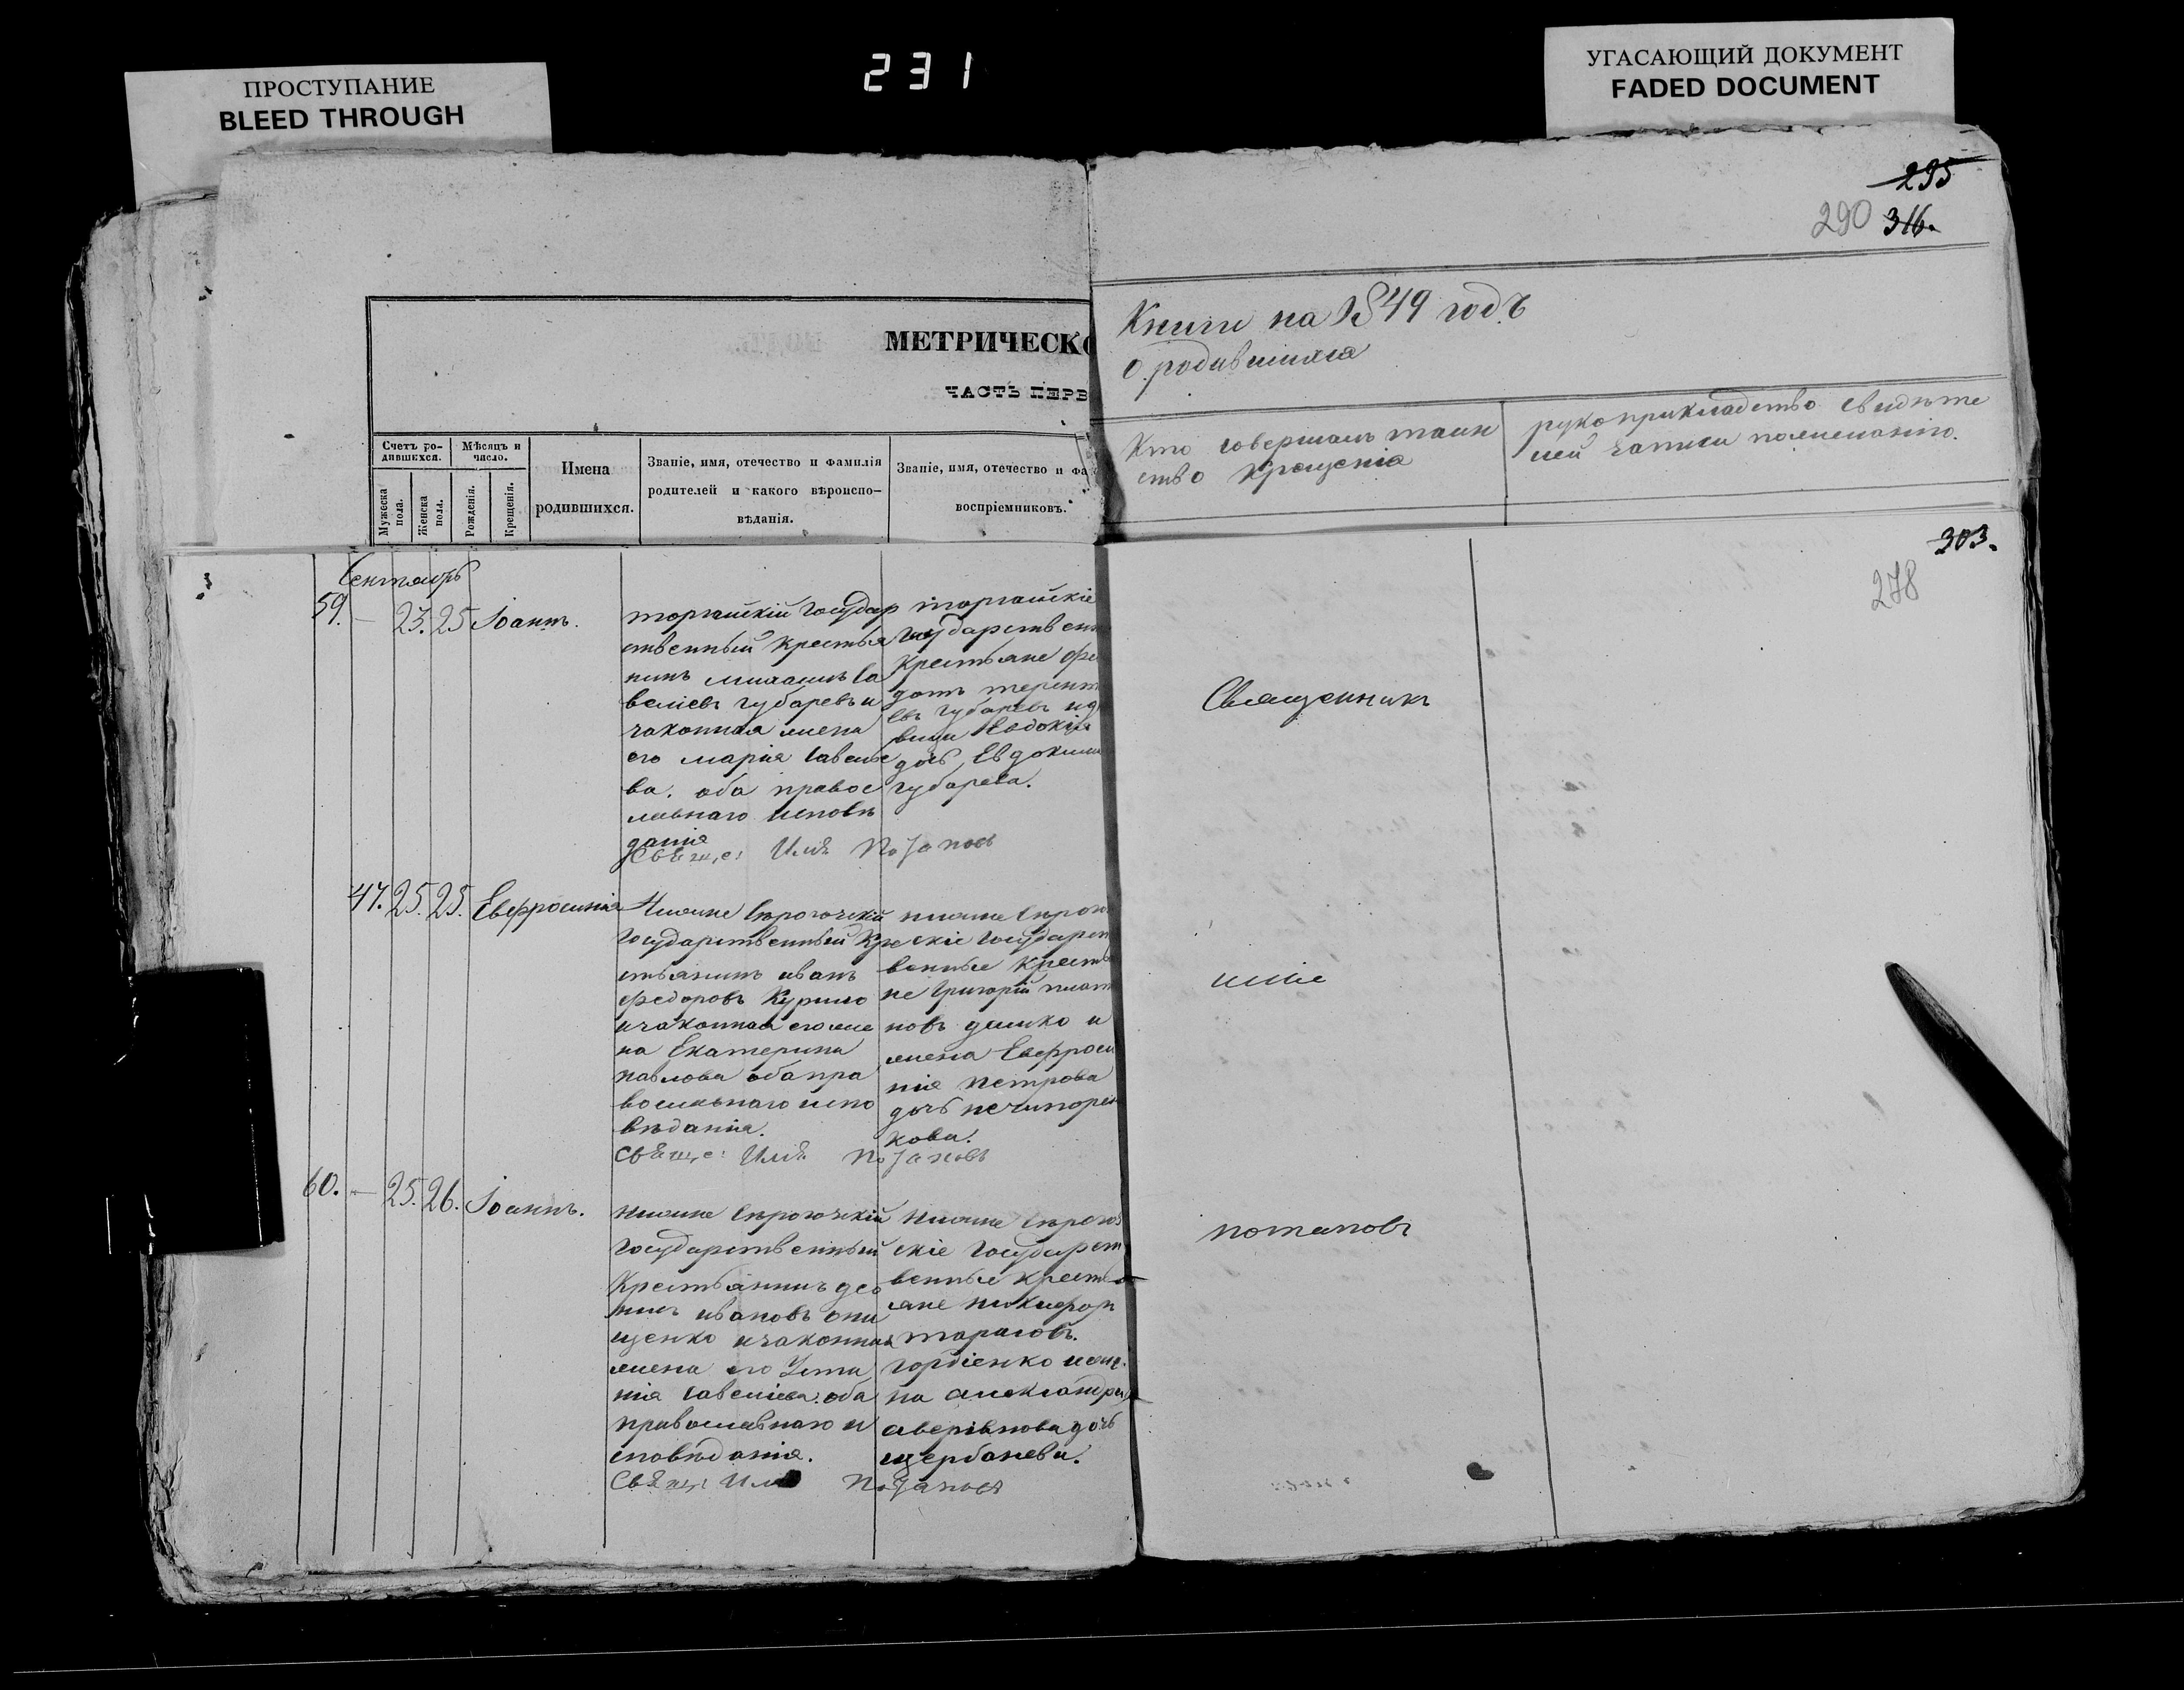 231
ПРОСТУПАНИЕ
BLEED THROUGH
УГАСАЮЩИЙ ДОКУМЕНТ
FADED DOCUMENT
295
290 316.
МЕТРИЧЕСКО
ЧАСТЬ ПЕРВ
Книги на 1849 годъ
о родившихся
Счетъ ро-
дившихся.
Мѣсяцъ и
число.
Мужеска
пола.
Женска
пола.
Рожденія.
Крещенія.
Имена
родившихся.
Званіе, имя, отечество и фамилія
родителей и какого вѣроиспо-
вѣданія.
Званіе, имя, отечество и фа
воспріемниковъ.
Кто совершалъ таин
ство Крещенія
рукоприкладство свидѣте
лей записи по желанію.
303.
278
Сентябрь
59. — 23. 25 Іоаннъ.
торгаискій Государ
ственный Крестья
нинъ михаилъ са
веліевъ губаревъ и
законная жена
его марія савелье
ва. оба правос
лавнаго исповѣ
данія
торгаискіе
Государствен
Крестьяне Фе
дотъ терент
евъ губаревъ и д
вица Евдокія
дочь Евдоким
губарева.
Свяще: Илія Потаповъ
Священникъ
47. 25. 25. Евфросинія
Нижне Сѣрогозскій
Государственный Кре
стьянинъ иванъ
федоровъ Курило
и законная его же
на Екатерина
павлова оба пра
вославнаго испо
вѣданія.
нижне Сѣрогоз
скіе Государст
венные Кресть
не Григорій плат
новъ дешко и
жена Евфроси
нія петрова
дочь нечипорен
кова.
Свяще: Илія Потаповъ
илія
60. — 25. 26. Іоаннъ.
нижне Сѣрогозскій
Государственный
Крестьянинъ део
ивановъ они
щенко и законная
жена его Усти
нія савеліева. оба
православнаго и
сповѣданія.
нижне Сѣрогоз
скіе Государст
венные Кресть
яне никифор
тарасовъ.
гордіенко и жен.
на александра
аверіянова дочь
щербанева.
Свящ: Илія Потаповъ
потаповъ